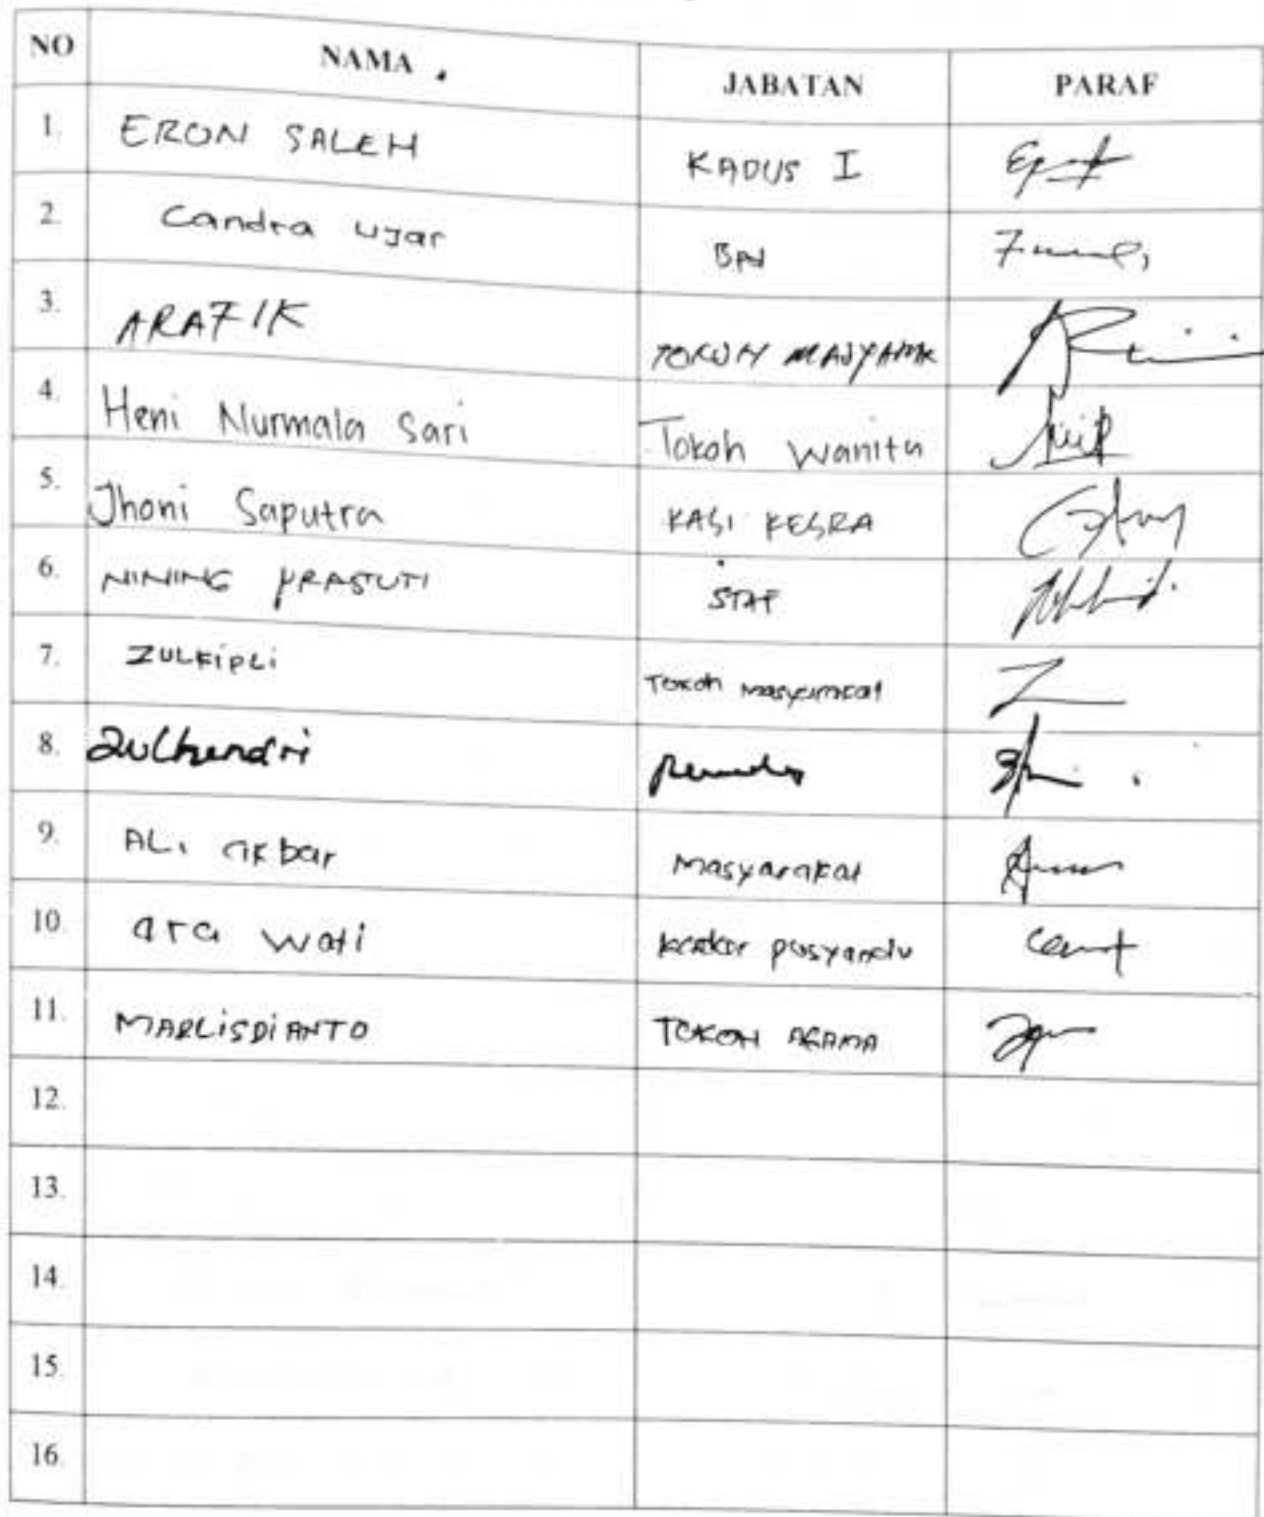 NO NAMA JABATAN PARAF
1. ERON SALEH KADUS I
2. Candra ujar
3. ARAFIK TOKOH
4. Heni Nurmala Sari Tokoh Wanita
5. Jhoni Saputra KASI KESRA
6. NINING STAF
7. ZULKIPLI Tokoh Masyarakat
8. Zulhendri
9. ALi akbar Masyarakat
10. ara wati kader posyandu
11. MARLISDIANTO TOKOH AGAMA
12.
13.
14.
15.
16.